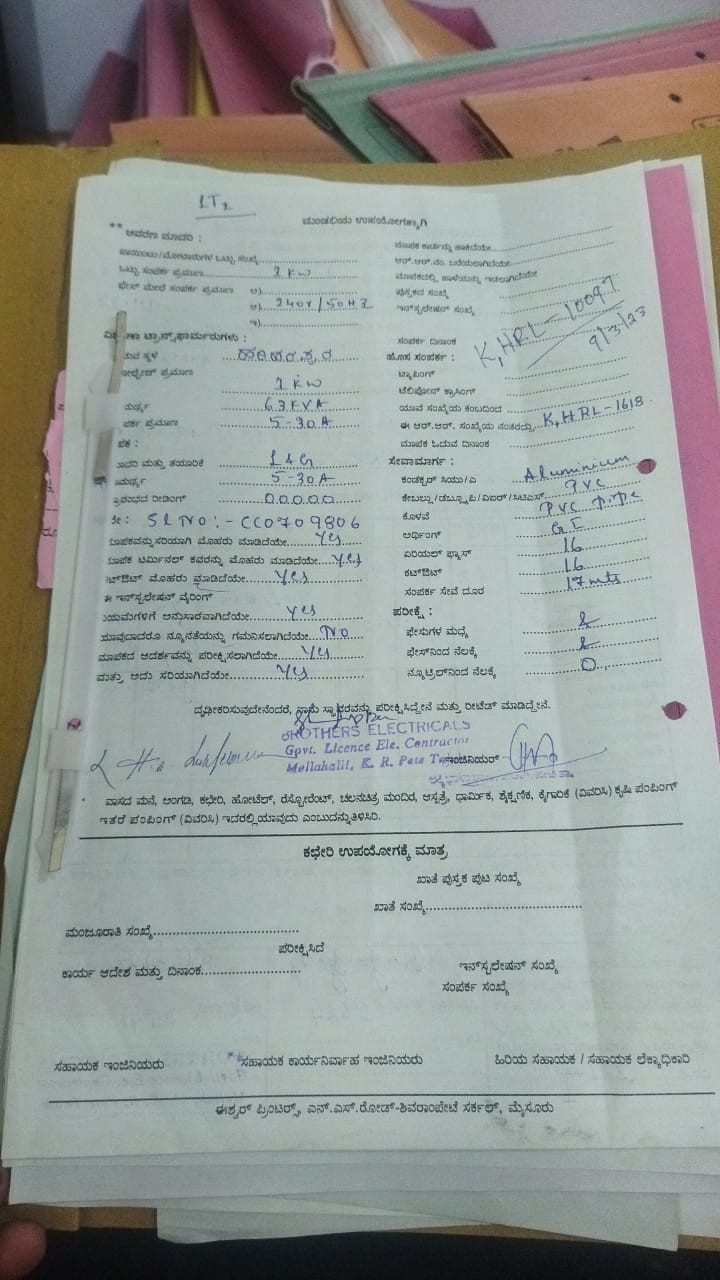 LT2
ಮಂಡಳಿಯ ಉಪಯೋಗಕ್ಕಾಗಿ
** ಆವರಣ ಮಾದರಿ :
ಪಾಯಿಂಟು/ಮೋಟಾರುಗಳ ಒಟ್ಟು ಸಂಖ್ಯೆ
ಒಟ್ಟು ಸಂಪರ್ಕ ಪ್ರಮಾಣ 1 KW
ಫೇಸ್ ಮೇಲೆ ಸಂಪರ್ಕ ಪ್ರಮಾಣ ಅ)
ಆ) 240V/50HZ
ಇ)
ಟ್ರಾನ್ಸ್‌ಫಾರ್ಮರುಗಳು :
ಸ್ಥಳ ಹರಿಹರಪುರ
ಪ್ರಮಾಣ
1 KW
63KVA
ಪ್ರಮಾಣ 5-30A
ಮತ್ತು ತಯಾರಿಕೆ L&G
5-30A
ರೀಡಿಂಗ್ 00000
SL NO :- CC0709806
ಮೊಹರು ಮಾಡಿದೆಯೇ Yes
ಟರ್ಮಿನಲ್ ಕವರನ್ನು ಮೊಹರು ಮಾಡಿದೆಯೇ Yes
ಮೊಹರು ಮಾಡಿದೆಯೇ Yes
ಈ ಇನ್‌ಸ್ಟಲೇಷನ್ ವೈರಿಂಗ್
ಅನುಸಾರವಾಗಿದೆಯೇ Yes
ಯಾವುದಾದರೂ ನ್ಯೂನತೆಯನ್ನು ಗಮನಿಸಲಾಗಿದೆಯೇ NO
ಮಾಪಕದ ಆದರ್ಶವನ್ನು ಪರೀಕ್ಷಿಸಲಾಗಿದೆಯೇ Yes
ಮತ್ತು ಅದು ಸರಿಯಾಗಿದೆಯೇ Yes
ಮಾಪಕ ಕಾರ್ಡನ್ನು ಹಾಕಿದೆಯೇ
ಆರ್.ಆರ್.ನಂ. ಬರೆಯಲಾಗಿದೆಯೇ
ಮಾಪಕದಲ್ಲಿ ಹಾಳೆಯನ್ನು ಇಡಲಾಗಿದೆಯೇ
ಪುಸ್ತಕದ ಸಂಖ್ಯೆ
ಇನ್‌ಸ್ಟಲೇಷನ್ ಸಂಖ್ಯೆ
K,HRL-10097
ಸಂಪರ್ಕ ದಿನಾಂಕ 9/3/23
ಹೊಸ ಸಂಪರ್ಕ :
ಟ್ಯಾಪಿಂಗ್
ಟೆಲಿಫೋನ್ ಕ್ರಾಸಿಂಗ್
ಯಾವ ಸಂಖ್ಯೆಯ ಕಂಬದಿಂದ
ಈ ಆರ್.ಆರ್. ಸಂಖ್ಯೆಯ ನಂತರದ್ದು K,HRL-1618
ಮಾಪಕ ಓದುವ ದಿನಾಂಕ
ಸೇವಾಮಾರ್ಗ :
ಕಂಡಕ್ಟರ್ ಸಿಯು/ಎ Aluminium
ಕೇಬಲ್ಲು/ಡಬ್ಲ್ಯೂಪಿ/ವಿಐಆರ್/ಸಿಟಿಎಸ್ PVC
ಕೊಳವೆ PVC Pipe
ಅರ್ಥಿಂಗ್ GI
ಏರಿಯಲ್ ಫ್ಯೂಸ್ 16
ಕಟ್‌ಔಟ್ 16
ಸಂಪರ್ಕ ಸೇವೆ ದೂರ 17mts
ಪರೀಕ್ಷೆ :
ಫೇಸುಗಳ ಮಧ್ಯೆ
ಫೇಸ್‌ನಿಂದ ನೆಲಕ್ಕೆ
ನ್ಯೂಟ್ರಲ್‌ನಿಂದ ನೆಲಕ್ಕೆ 0
ದೃಢೀಕರಿಸುವುದೇನೆಂದರೆ, ಪರೀಕ್ಷಿಸಿದ್ದೇನೆ ಮತ್ತು ರೀಟೆಡ್ ಮಾಡಿದ್ದೇನೆ.
BROTHERS ELECTRICALS
Govt. Licence Ele. Contractor
Mallahalli, K. R. Pete
ಇಂಜಿನಿಯರ್
* ವಾಸದ ಮನೆ, ಅಂಗಡಿ, ಕಛೇರಿ, ಹೋಟೆಲ್, ರೆಸ್ಟೋರೆಂಟ್, ಚಲನಚಿತ್ರ ಮಂದಿರ, ಆಸ್ಪತ್ರೆ, ಧಾರ್ಮಿಕ, ಶೈಕ್ಷಣಿಕ, ಕೈಗಾರಿಕೆ (ವಿವರಿಸಿ) ಕೃಷಿ ಪಂಪಿಂಗ್
ಇತರೆ ಪಂಪಿಂಗ್ (ವಿವರಿಸಿ) ಇದರಲ್ಲಿಯಾವುದು ಎಂಬುದನ್ನುತಿಳಿಸಿರಿ.
ಕಛೇರಿ ಉಪಯೋಗಕ್ಕೆ ಮಾತ್ರ
ಖಾತೆ ಪುಸ್ತಕ ಪುಟ ಸಂಖ್ಯೆ
ಖಾತೆ ಸಂಖ್ಯೆ
ಮಂಜೂರಾತಿ ಸಂಖ್ಯೆ
ಪರೀಕ್ಷಿಸಿದೆ
ಕಾರ್ಯ ಆದೇಶ ಮತ್ತು ದಿನಾಂಕ
ಇನ್‌ಸ್ಟಲೇಷನ್ ಸಂಖ್ಯೆ
ಸಂಪರ್ಕ ಸಂಖ್ಯೆ
ಸಹಾಯಕ ಇಂಜಿನಿಯರು ಸಹಾಯಕ ಕಾರ್ಯನಿರ್ವಾಹ ಇಂಜಿನಿಯರು ಹಿರಿಯ ಸಹಾಯಕ / ಸಹಾಯಕ ಲೆಕ್ಕಾಧಿಕಾರಿ
ಈಶ್ವರ್ ಪ್ರಿಂಟರ್ಸ್, ಎನ್.ಎಸ್.ರೋಡ್-ಶಿವರಾಂಪೇಟೆ ಸರ್ಕಲ್, ಮೈಸೂರು